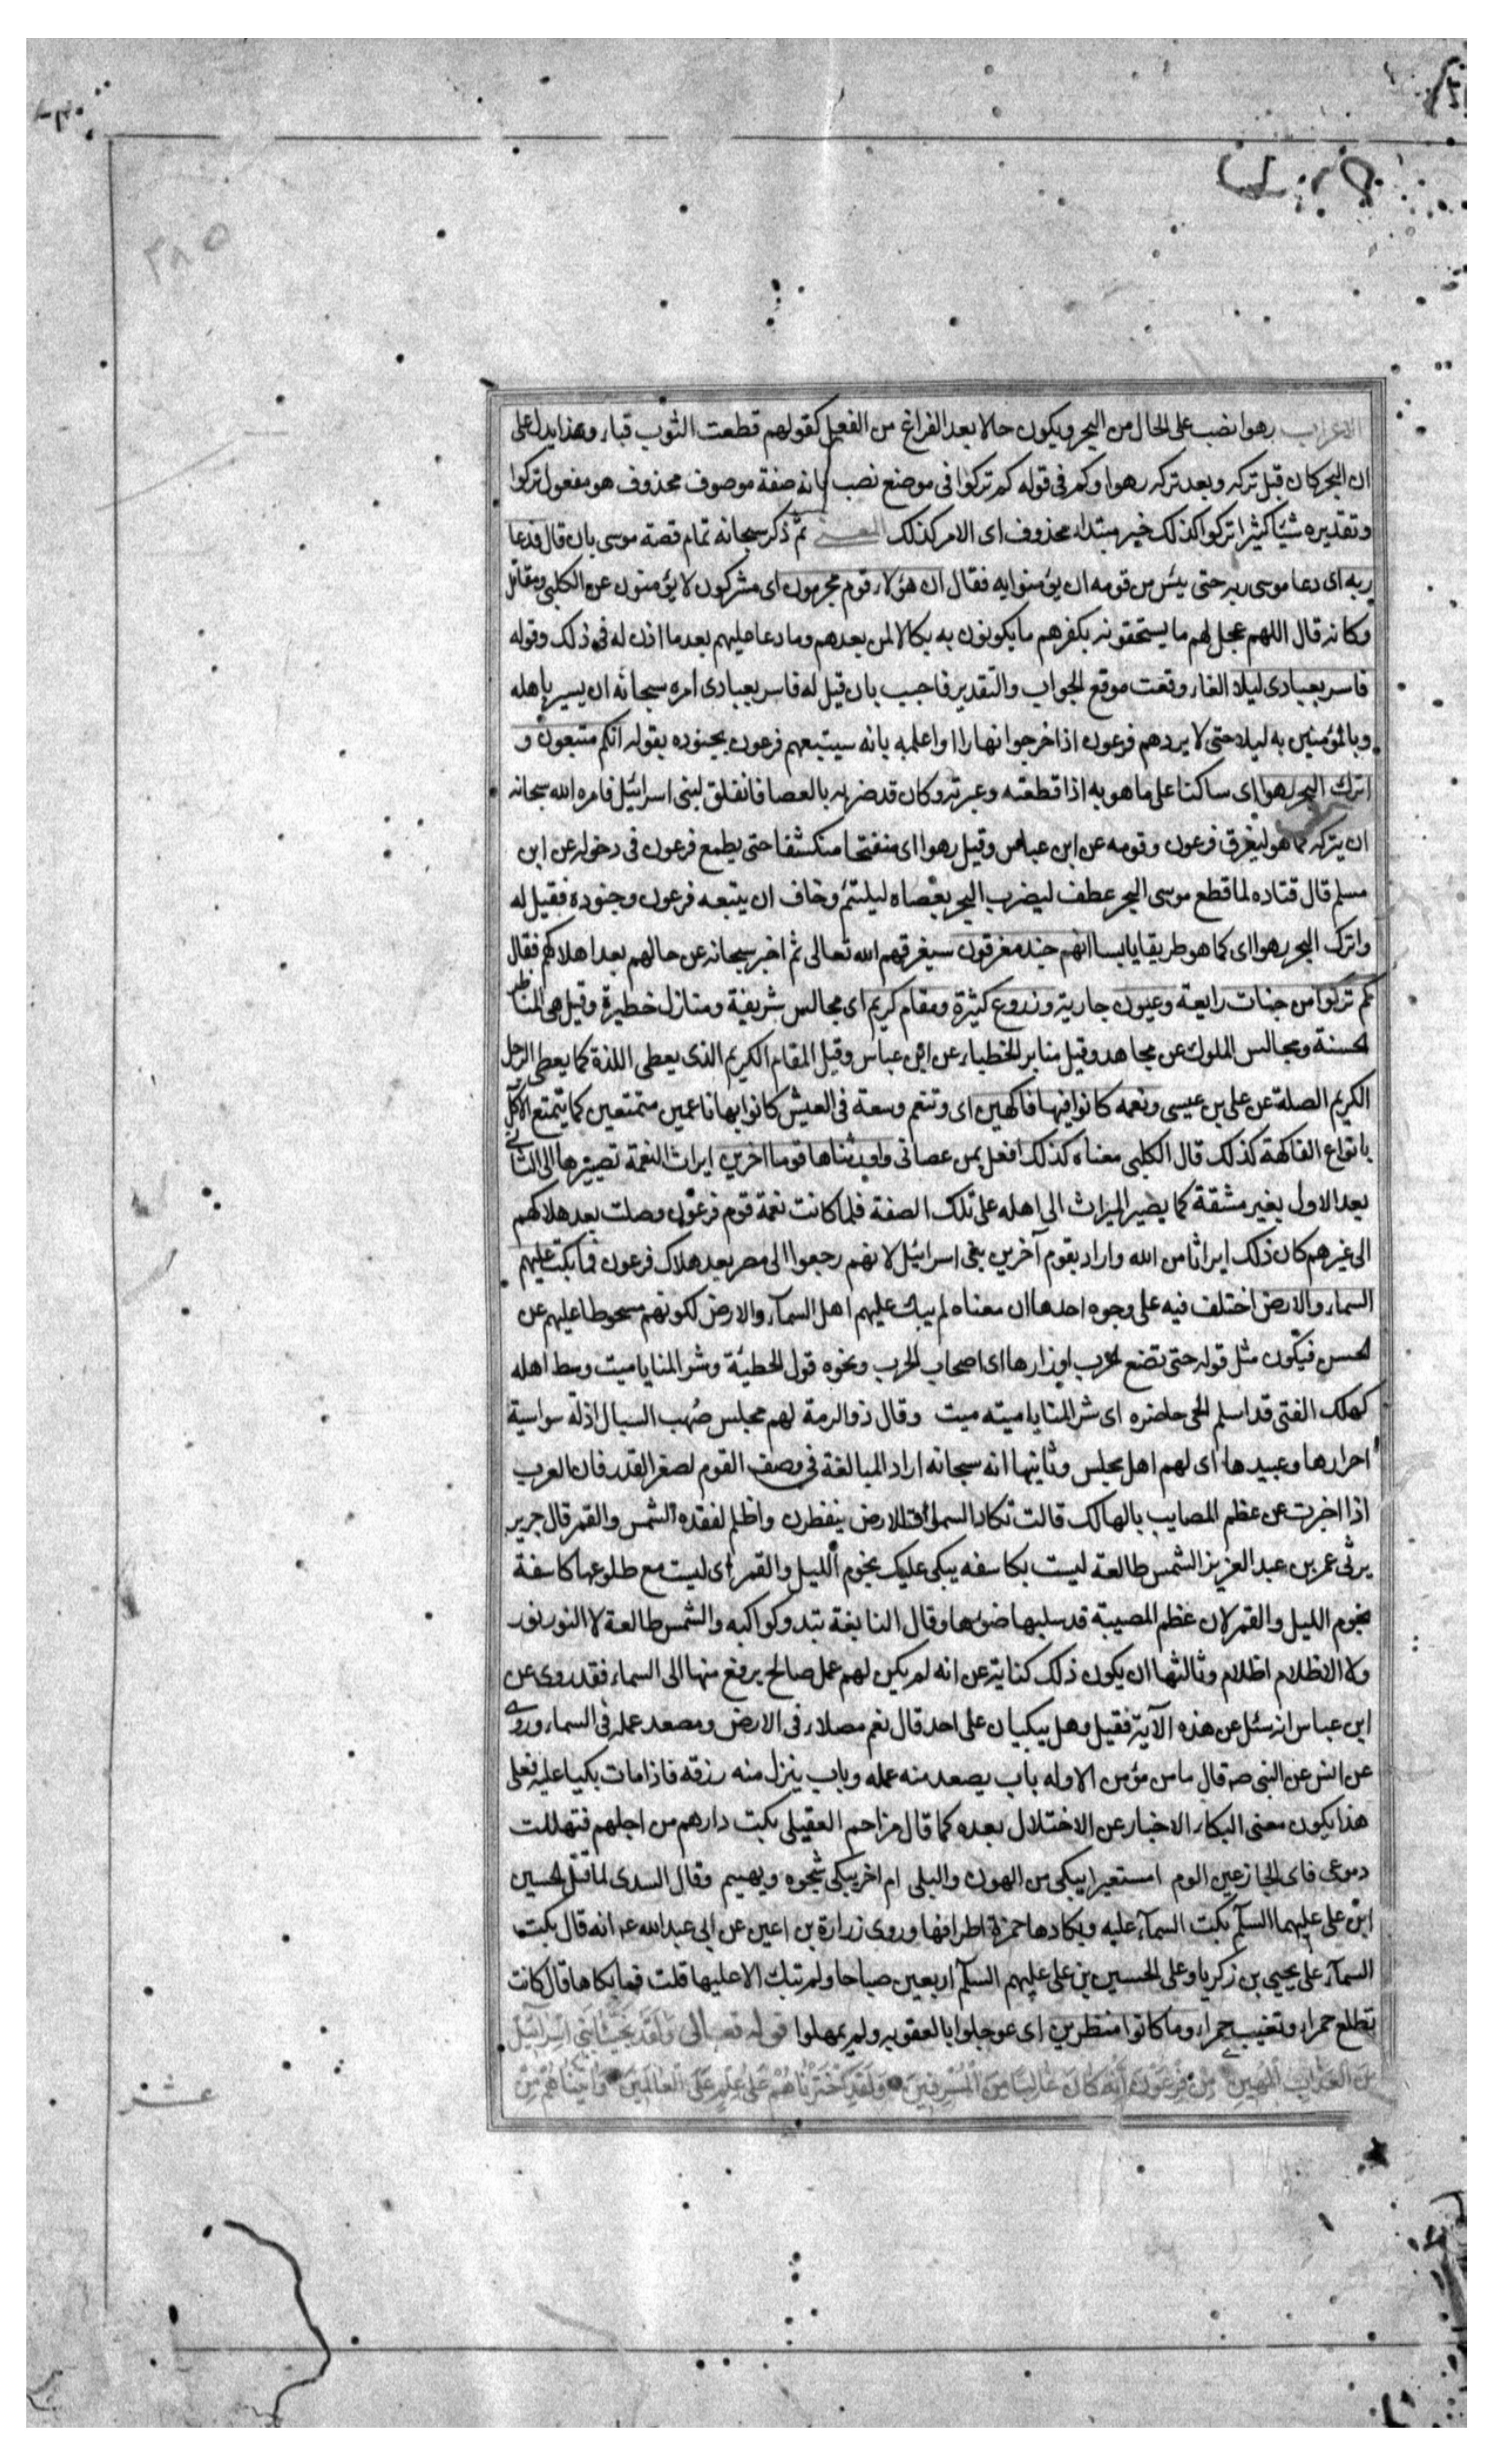 جزء
٣٨٥
الاعراب رهوا نصب على الحال من البحر ويكون حالا بعد الفراغ من الفعل كقولهم قطعت الثوب قباء وهذا يدل على
ان البحر كان قبل تركه وبعد تركه رهوا وكم فى قوله كم تركوا فى موضع نصب بانه صفة موصوف محذوف هو مفعول تركوا
وتقديره شيئا كثيرا تركوا كذلك خبر مبتداء محذوف اى الامر كذلك المعنى ثم ذكر سبحانه تمام قصة موسى بان قال فدعا
ربه اى دعا موسى ربه حتى يئس من قومه ان يؤمنوا به فقال ان هؤلاء قوم مجرمون اى مشركون لا يؤمنون عن الكلبى ومقاتل
وكانه قال اللهم عجل لهم ما يستحقونه بكفرهم ما يكونون به نكالا لمن بعدهم وما دعا عليهم بعد ما اذن له فى ذلك وقوله
فاسر بعبادى ليلا الفاء وقعت موقع الجواب والتقدير فاجيب بان قيل له فاسر بعبادى امره سبحانه ان يسير باهله
وبالمؤمنين به ليلا حتى لا يردهم فرعون اذا خرجوا نهارا واعلمه بانه سيتبعهم فرعون بجنوده بقوله انكم متبعون و
اترك البحر رهوا اى ساكنا على ما هو به اذا قطعته وعبرته وكان قد ضربه بالعصا فانفلق لبنى اسرائيل فامره الله سبحانه
ان يتركه كما هو ليغرق فرعون وقومه عن ابن عباس وقيل رهوا اى منفتحا منكشفا حتى يطمع فرعون فى دخوله عن ابن
مسلم قال قتاده لما قطع موسى البحر عطف ليضرب البحر بعصاه ليلتئم وخاف ان يتبعه فرعون وجنوده فقيل له
واترك البحر رهوا اى كما هو طريقا يابسا انهم جند مغرقون سيغرقهم الله تعالى ثم اخبر سبحانه عن حالهم بعد اهلاكهم فقال
كم تركوا من جنات رايعة وعيون جارية وزروع كثيرة ومقام كريم اى مجالس شريفة ومنازل خطيرة وقيل هى المناظر
الحسنة ومجالس الملوك عن مجاهد وقيل منابر الخطباء عن ابن عباس وقيل المقام الكريم الذى يعطى اللذة كما يعطى الرجل
الكريم الصلة عن على بن عيسى ونعمه كانوا فيها فاكهين اى وتنعم وسعة فى العيش كانوا بها ناعمين متمتعين كما يتمتع الآكل
بانواع الفاكهة كذلك قال الكلبى معناه كذلك افعل بمن عصانى واورثناها قوما اخرين ايراث النعمة تصييرها الى الثانى
بعد الاول بغير مشقة كما يصير الميراث الى اهله على تلك الصفة فلما كانت نعمة قوم فرعون وصلت بعد هلاكهم
الى غيرهم كان ذلك ايراثا من الله واراد بقوم آخرين بنى اسرائيل لانهم رجعوا الى مصر بعد هلاك فرعون فما بكت عليهم
السماء والارض اختلف فيه على وجوه احدها ان معناه لم يبك عليهم اهل السمآء والارض لكونهم مسخوطا عليهم عن
الحسن فيكون مثل قوله حتى تضع الحرب اوزارها اى اصحاب الحرب ونحوه قول الحطيئة وشر المنايا ميت وسط اهله
كهلك الفتى قد اسلم الحى حاضره اى شر المنايا ميته ميت وقال ذو الرمة لهم مجلس صهب السبال اذلة سواسية
احرارها وعبيدها اى لهم اهل مجلس وثانيها انه سبحانه اراد المبالغة فى وصف القوم لصغر القدر فان العرب
اذا اخبرت عن عظم المصايب بالهالك قالت تكاد السماء والارض ينفطرن واظلم لفقده الشمس والقمر قال جرير
يرثى عمر بن عبد العزيز الشمس طالعة ليست بكاسفه يبكى عليك نجوم الليل والقمر اى ليست مع طلوعها كاسفة
نجوم الليل والقمر لان عظم المصيبة قد سلبها ضوءها وقال النابغة تبدو كواكبه والشمس طالعة لا النور نور
ولا الاظلام اظلام وثالثها ان يكون ذلك كناية عن انه لم يكن لهم عمل صالح يرفع منها الى السماء فقد روى عن
ابن عباس انه سئل عن هذه الآية فقيل وهل يبكيان على احد قال نعم مصلاه فى الارض ومصعد عمله فى السماء وروى
عن انس عن النبى صه قال ما من مؤمن الا وله باب يصعد منه عمله وباب ينزل منه رزقه فاذا مات بكيا عليه فعلى
هذا يكون معنى البكاء الاخبار عن الاختلال بعده كما قال مزاحم العقيلى بكت دارهم من اجلهم فتهللت
دموعى فاى الجازعين الوم امستعبرا يبكى من الهون والبلى ام اخر يبكى شجوه ويهيم وقال السدى لما قتل الحسين
ابن على عليهما السلم بكت السمآء عليه وبكاءها حمرة اطرافها وروى زرارة بن اعين عن ابى عبد الله عـ انه قال بكت
السمآء على يحيى بن زكريا وعلى الحسين بن على عليهم السلم اربعين صباحا ولم تبك الا عليها قلت فما بكاها قال كانت
تطلع حمراء وتغيب حمراء وما كانوا منظرين اى عوجلوا بالعقوبه ولم يمهلوا قوله تعالى وَلَقَدْ نَجَّيْنَا بَنِي اِسْرَآئِيلَ
مِنَ الْعَذَابِ الْمُهِينِ مِنْ فِرْعَوْنَ اِنَّهُ كَانَ عَالِيًا مِنَ الْمُسْرِفِينَ وَلَقَدِ اخْتَرْنَاهُمْ عَلَى عِلْمٍ عَلَى الْعَالَمِينَ وَآتَيْنَاهُمْ مِنَ
عشر